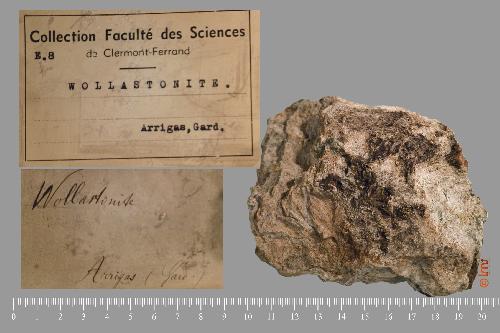 Collection Faculté des Sciences
E.8 de Clermont-Ferrand
WOLLASTONITE.
Arrigas, Gard.
Wollastonite
Arrigas (Gard.)
© LMV
0 1 2 3 4 5 6 7 8 9 10 11 12 13 14 15 16 17 18 19 20